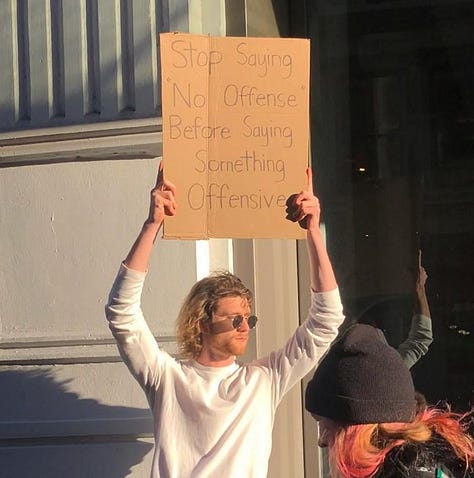 Stop Saying
"No Offense"
Before Saying
Something
Offensive